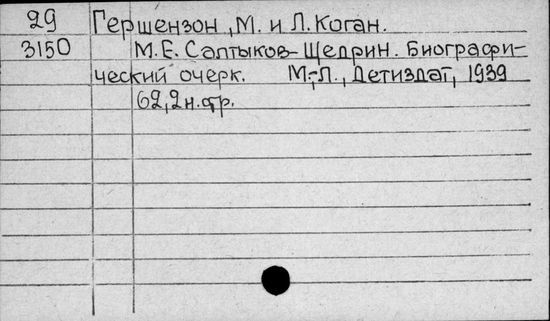 29 Гершензон, М. и Л. Коган.
3150 М.Е. Салтыков-Щедрин. Биографи-
ческий очерк. М.-Л., Детиздат, 1939
62, 2 н. стр.